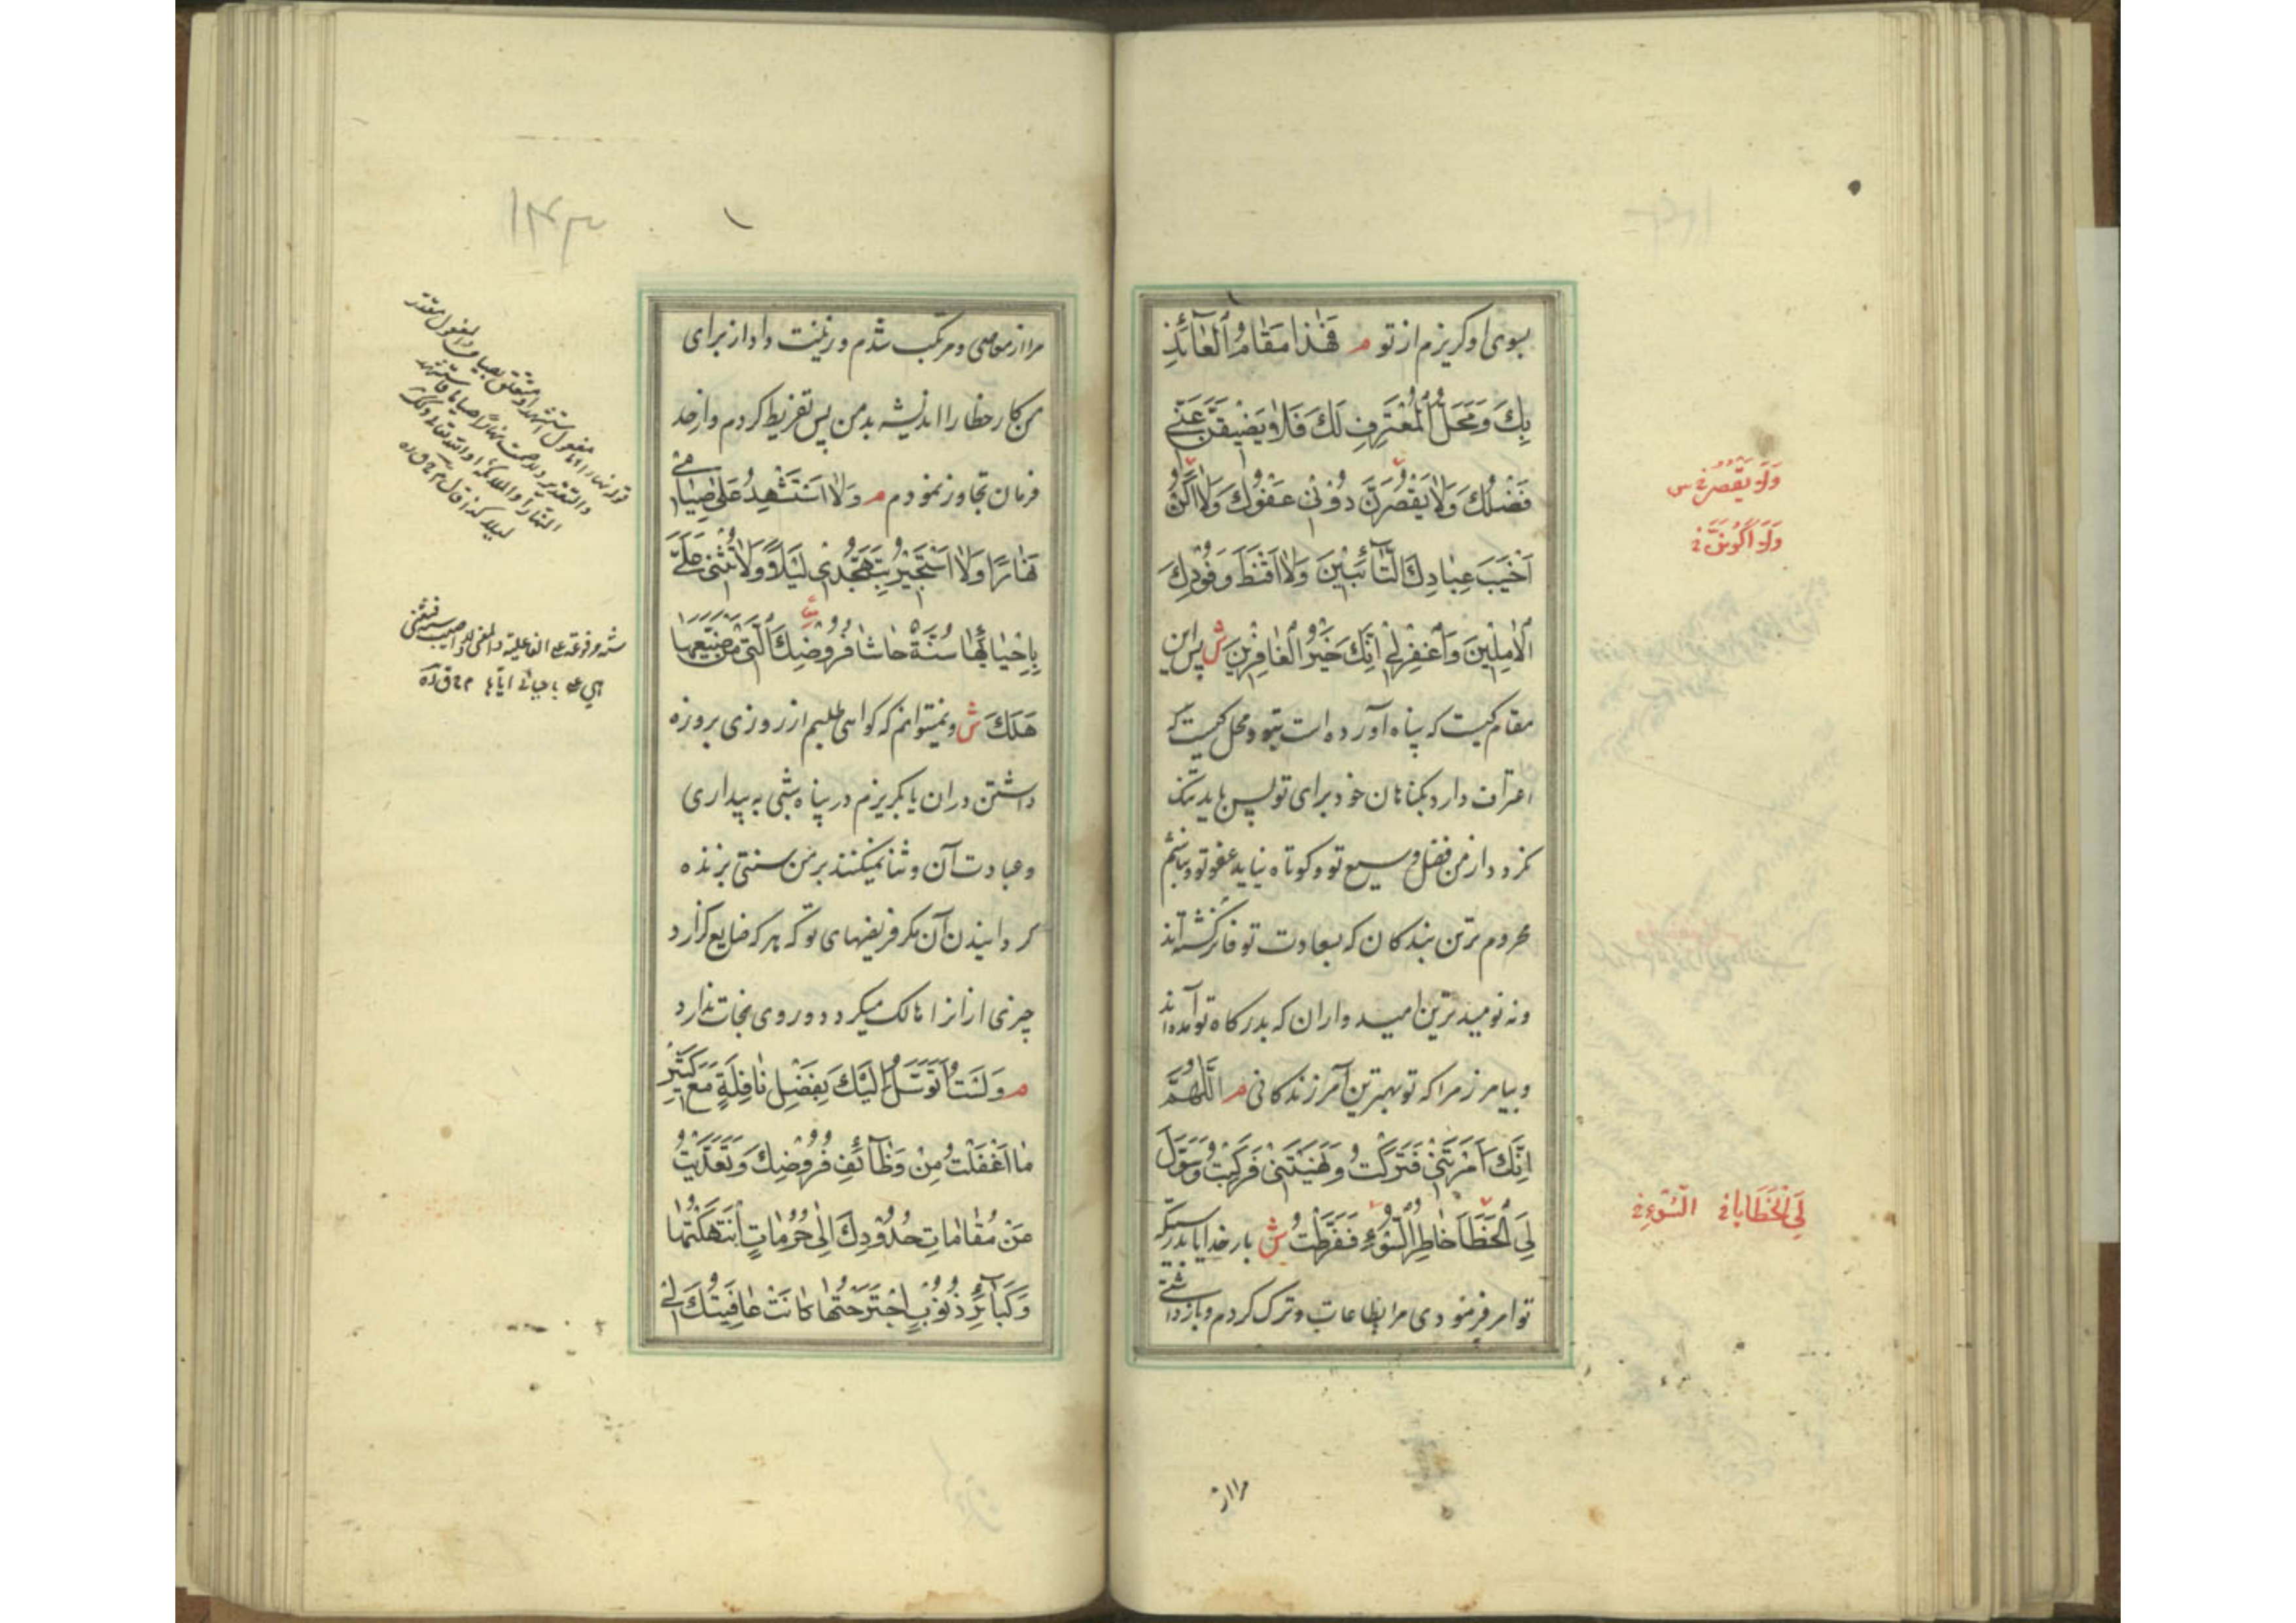 بسوی او کریزم از تو م فَهٰذا مَقامُ الْعآئِذِ
بِكَ وَمَحَلُّ الْمُعْتَرِفِ لَكَ فَلا يَضيقَنَّ عَنّي
فَضْلُكَ وَلا يَقْصُرَنَّ دُوني عَفْوُكَ وَلا اَكُنْ
اَخْيَبَ عِبادِكَ التّآئِبينَ وَلا اَقْنَطَ وُفُودِكَ
الْآمِلينَ وَاغْفِرْلي اِنَّكَ خَيْرُ الْغافِرينَ ش پس این
مقام کیست که پناه آورده است بتو و محل کیست که
اعتراف دارد بکناهان خود برای تو پس باید تنک
نکردد از من فضل وسیع تو و کوتاه نیاید عفو تو و نباشم
محروم ترین بندکان که بسعادت تو فائز کشته‌اند
ونه نومیدترین امیدواران که بدرکاه تو آمده‌اند
وبیامرز مرا که تو بهترین آمرزندکانی م اَللّهُمَّ
اِنَّكَ اَمَرْتَني فَتَرَكْتُ وَنَهَيْتَني فَرَكِبْتُ وَسَوَّلَ
لِيَ الْخَطاَ خاطِرُ السُّوءِ فَفَرَّطْتُ ش بار خدایا بدرستیکه
تو امر فرمودی مرا بطاعات وترک کردم وبازداشتی
وَلا يَقْصُرُ
وَلا اَكُونَنَّ
لِيَ الْخَطايا السُّوءِ
مرا از
مرا از معاصی ومرتکب شدم وزینت داد از برای
من کار خطا را اندیشه بد من پس تفریط کردم واز حد
فرمان تجاوز نمودم م وَلا اَسْتَشْهِدُ عَلى صِيامي
نَهارًا وَلا اَسْتَجيرُ بِتَهَجُّدي لَيْلًا وَلا تُثْني عَلَيَّ
بِاِحْيآئِها سُنَّةٌ حاشا فُرُوضِكَ الَّتي مَنْ ضَيَّعَها
هَلَكَ ش ونمیتوانم که کواهی طلبم از روزی بروزه
داشتن در آن یا بکریزم در پناه شبی به بیداری
وعبادت آن وثنا نمیکنند بر من سنتی بزنده
کردانیدن آن مکر فریضهای تو که هر که ضایع کزارد
چیزی از انرا هالک میکردد وروی نجات ندارد
م وَلَسْتُ اَتَوَسَّلُ اِلَيْكَ بِفَضْلِ نافِلَةٍ مَعَ كَثيرِ
ما اَغْفَلْتُ مِنْ وَظآئِفِ فُرُوضِكَ وَتَعَدَّيْتُ
عَنْ مَقاماتِ حُدُودِكَ اِلى حُرُماتٍ اِنْتَهَكْتُها
وَكَبآئِرِ ذُنُوبٍ اجْتَرَحْتُها كانَتْ عافِيَتُكَ لي